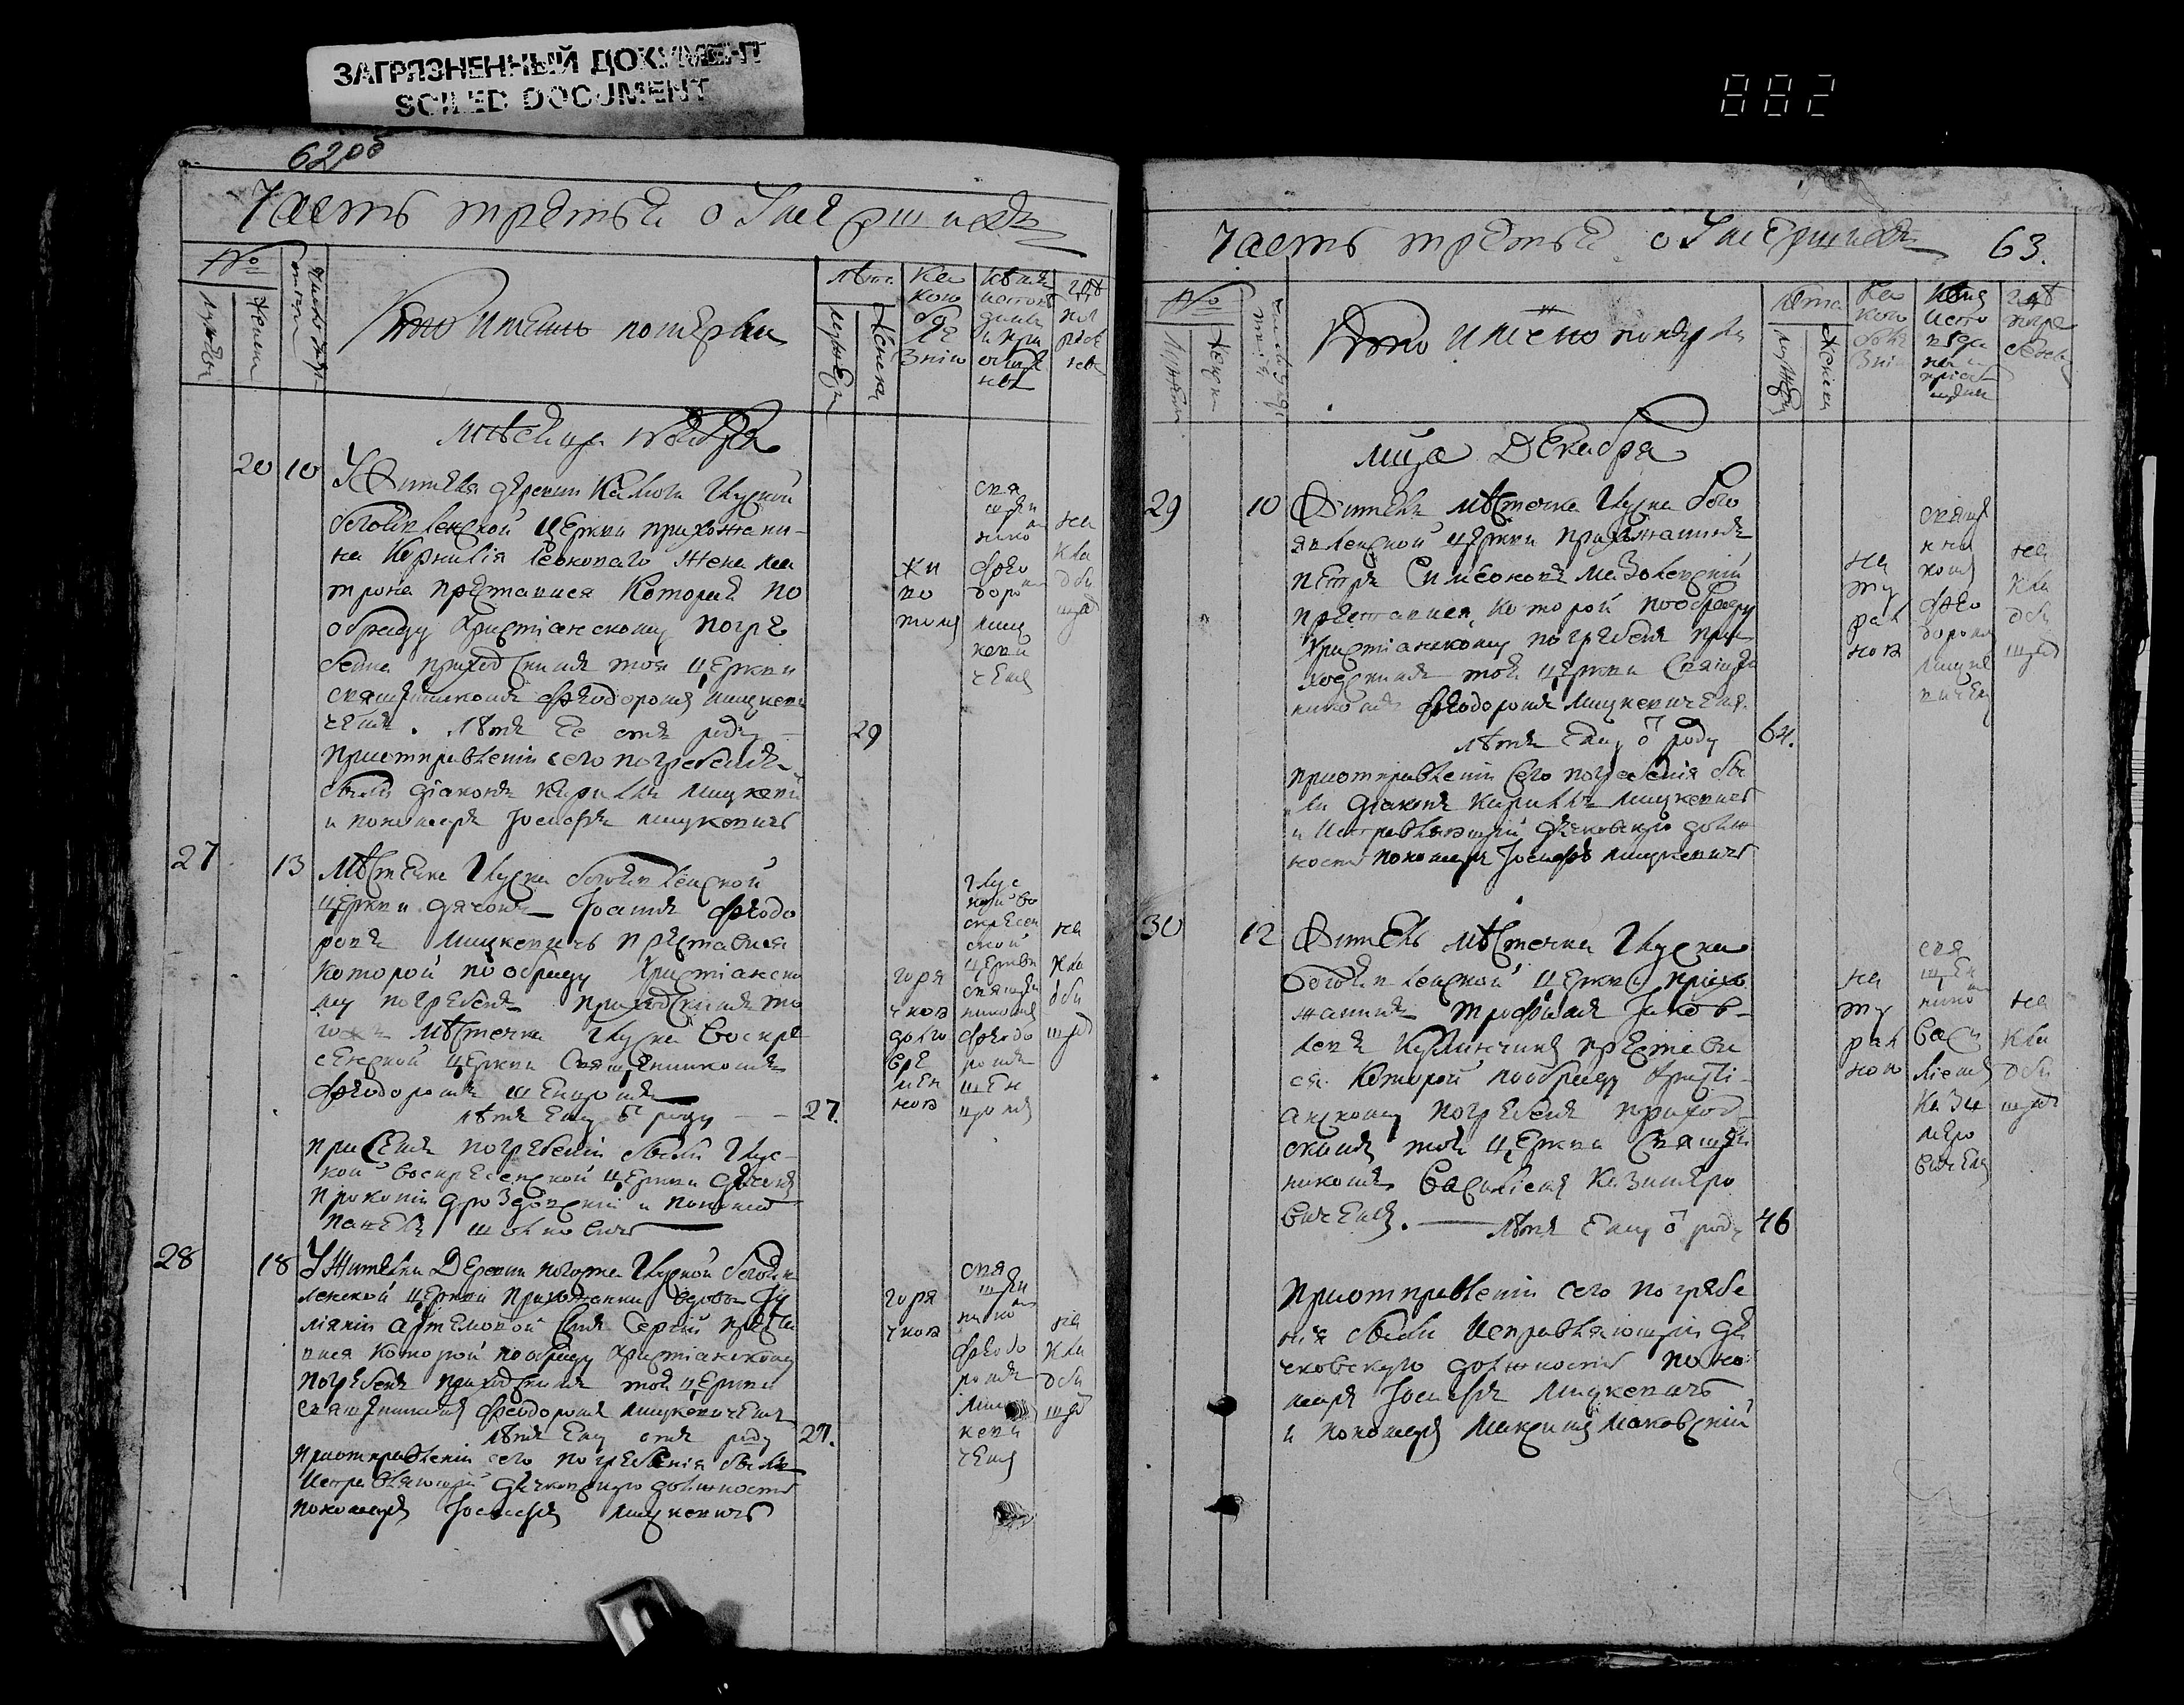 ЗАГРЯЗНЕННЫЙ ДОКУМЕНТ
SOILED DOCUMENT
882
62об
Часть третья о Умершихъ
№
Мужеска
Женска
Число
лѣта
Мужеска
Женска
Кто именно померли
Ка
кою
бо
ле
знію
Кѣмъ
исповѣ
даны
и при
обще
ны
гдѣ
пог
ребе
ны
Мѣсяца Ноября
20 10 У Жителя деревни Калюги Глуской
богоявленской церкви прихожани-
на Корнилія жена ма
трона преставися Которая по
обряду Христіанскому погре
бена приходскимъ тоя церкви
священникомъ Феодоромъ мицкеви
чемъ. лѣтъ Ее отъ роду 29
При отправленіи сего погребенія
были діаконъ Кирилъ мицкевичь
и пономарь Іосифъ мицкевичъ
чи
но
тою
свя
щен
нико
Фео
доро
миц
кеви
чемъ
на
кла
дби
щѣ
27 13 Мѣстечка Глуска богоявленской
церкви дячокъ Іоаннъ Феодо
ровъ мицкевичъ преставися
которой по обряду Христіанско
му погребенъ приходскимъ то
гожъ мѣстечка Глуска Воскре
сенской церкви Священникомъ
Феодоромъ
лѣтъ Ему отъ роду 27.
При семъ погребеніи были Глус-
кой воскресенской церкви дячокъ
Прокопій дроздовскій и пономарь
горя
чкою
долго
вре
мен
ною
глус
кой во
скресен
ской
церкви
священ
никомъ
Феодо
ромъ
на
кла
дби
щѣ
28 18 У Жителки Деревни погоста Глуской богояв
ленской церкви прихожанки вдовы Іу
ліяніи Артемовой сынъ Сергій преста
вися которой по обряду Христіанскому
погребенъ приходскимъ той церкви
священникомъ Феодоромъ мицкевичемъ
лѣтъ Ему отъ роду 27.
При отправленіи сего погребенія были
Исправляющій дячковскую должность
пономарь Іосифъ мицкевичъ
горя
чкою
свя
щен
нико
Феодо
ромъ
миц
кеви
чемъ
на
кла
дби
щѣ
Часть третья о Умершихъ 63.
№
Мужеска
Женска
лѣта
Мужеска
Женска
Кто имено померли
Ка
кою
боле
знію
Кѣмъ
испо
гдѣ
погре
бены
мца Декабря
29 10 Житель мѣстечка Глуска бого
явленской церкви прихожанинъ
Петръ Симеоновъ Мазолевскій
преставися, которой по обряду
Христіанскому погребенъ при
ходскимъ той церкви Священ
никомъ Феодоромъ мицкевичемъ.
лѣтъ Ему от роду 64.
При отправленіи Сего погребенія бы
ли діаконъ Кирилъ мицкевичъ
и Исправляющій дячковскую долж
ность пономарь Іосифъ мицкевичъ
на
ту
рал
ною
священ
нико
мъ
Фео
доромъ
мицке
вичем
на
кла
дби
щѣ
30 12 Житель мѣстечка Глуска
богоявленской церкви прихо
жанинъ Трофимъ Іаков-
левъ преставы
ся. Которой по обряду Христі-
анскому погребенъ приход
скимъ той церкви Священ
никомъ Василіемъ Казимиро
вичемъ. лѣтъ Ему от роду 46
При отправленіи сего погребе
нія были Исправляющій дя
чковскую должность поно
марь Іосифъ мицкевичъ
и пономарь Максимъ маковскій
на
ту
рал
ною
свя
щен
нико
Васи
ліемъ
Кази
миро
вичемъ
на
кла
дби
щѣ